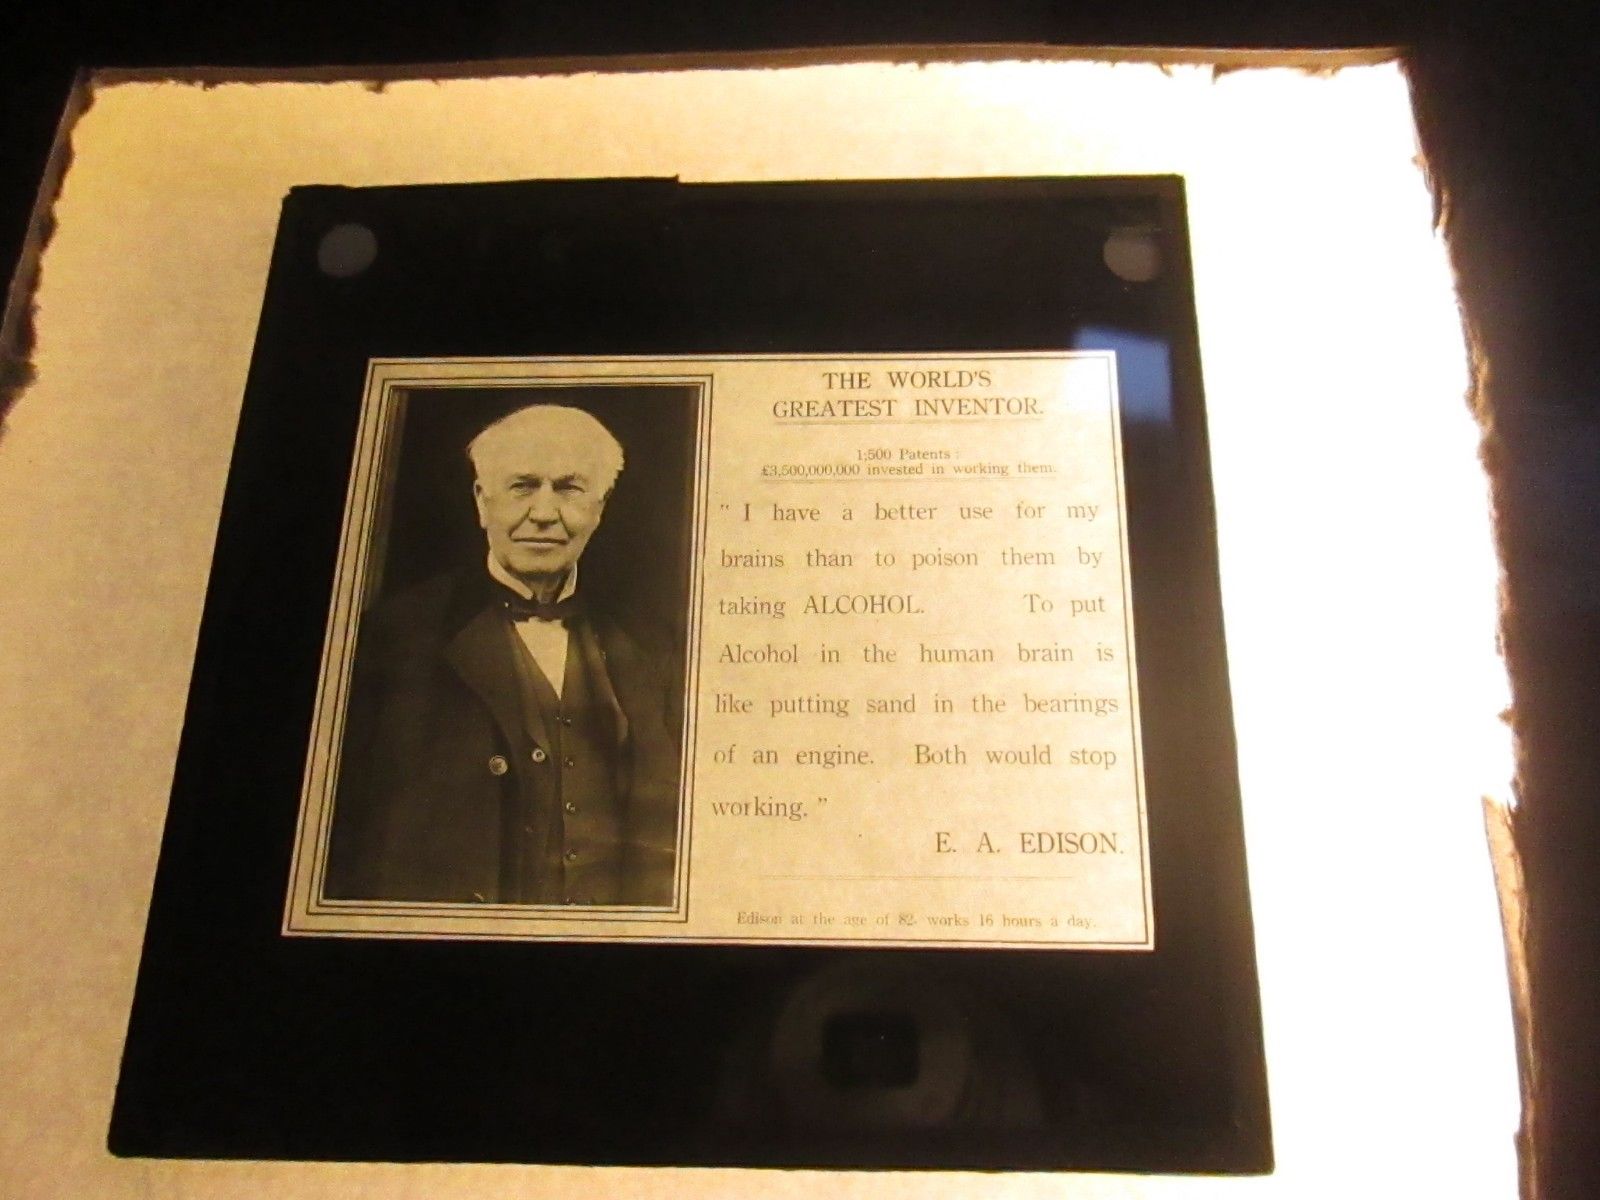 THE WORLD'S
GREATEST INVENTOR.
1,500 Patents :
£3,500,000,000 invested in working them.
" I have a better use for my
brains than to poison them by
taking ALCOHOL. To put
Alcohol in the human brain is
like putting sand in the bearings
of an engine. Both would stop
working. "
E. A. EDISON.
Edison at the age of 82, works 16 hours a day.